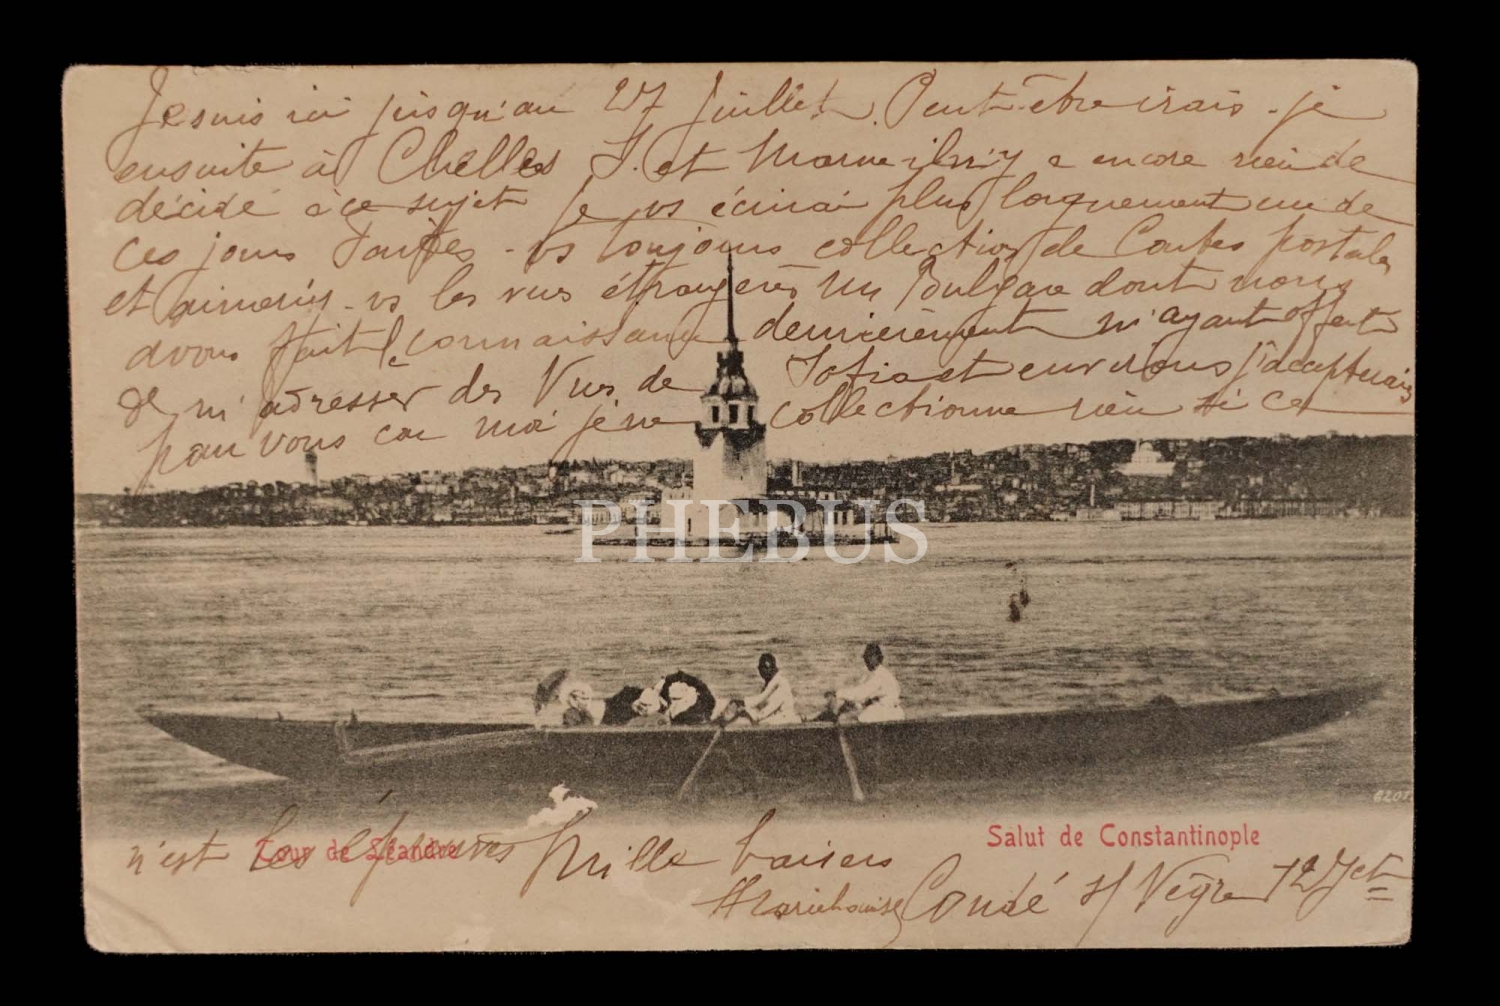 Je suis ici jusqu'au 27 Juillet. Peut-être irais-je
ensuite à Chelles S. et Marne il n'y a encore rien de
décidé à ce sujet Je vs écrirai plus longuement un de
ces jours - vs toujours collection de Cartes postales
et aimeriez-vs les vues étrangères Un Bulgare dont nous
avons fait la connaissance dernièrement m'ayant offert
de m'adresser des Vues de Sofia et environs j'accepterais
pour vous car moi je ne collectionne rien si ce
PHEBUS
6203
n'est les Mille baisers
Tour de Léandre
Salut de Constantinople
Marielouise Condé s/ Vègre 12 Jct